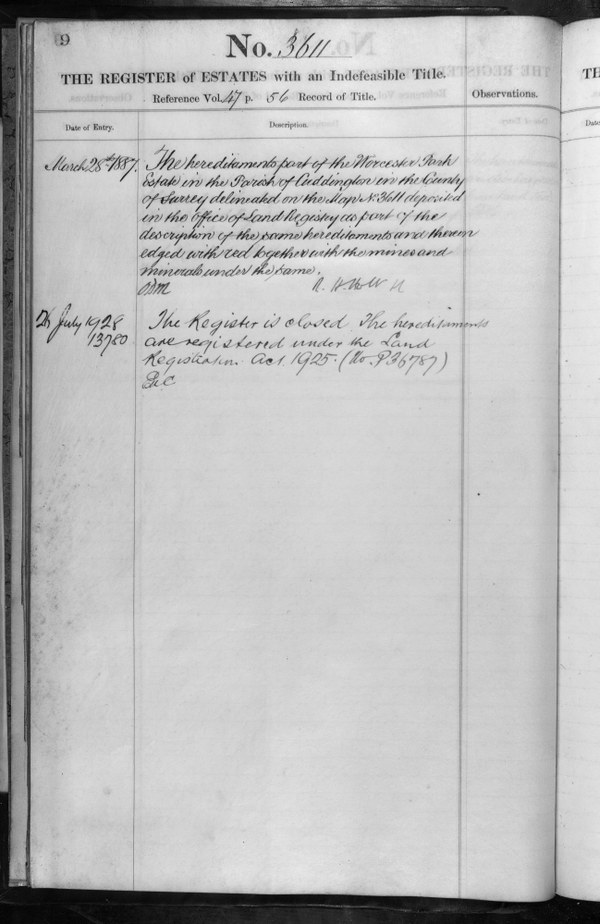 9
No. 3611
THE REGISTER of ESTATES with an Indefeasible Title.
Reference Vol. 47 p. 56 Record of Title.
Observations.
Date of Entry.
Description.
March 28th 1887.
The hereditaments part of the Worcester Park
Estate in the Parish of Cuddington in the County
of Surrey delineated on the Map No. 3611 deposited
in the Office of Land Registry as part of the
description of the same hereditaments and therein
edged with red together with the mines and
minerals under the same.
26 July 1928
13780
The Register is closed. The hereditaments
are registered under the Land
Registration Act 1925. (No. P36787)
TH